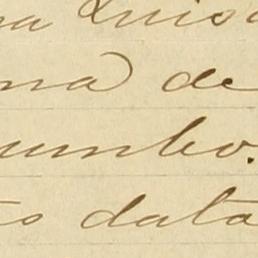 na Luisa
ma de
umbo.
to data